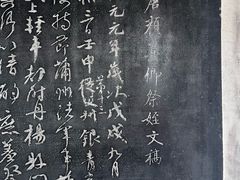 唐顏真卿祭姪文稿
元元年歲次戊戌九月
三日壬申第十三銀青
使持節蒲州諸軍事
上輕車都尉丹楊縣開
以清酌庶羞